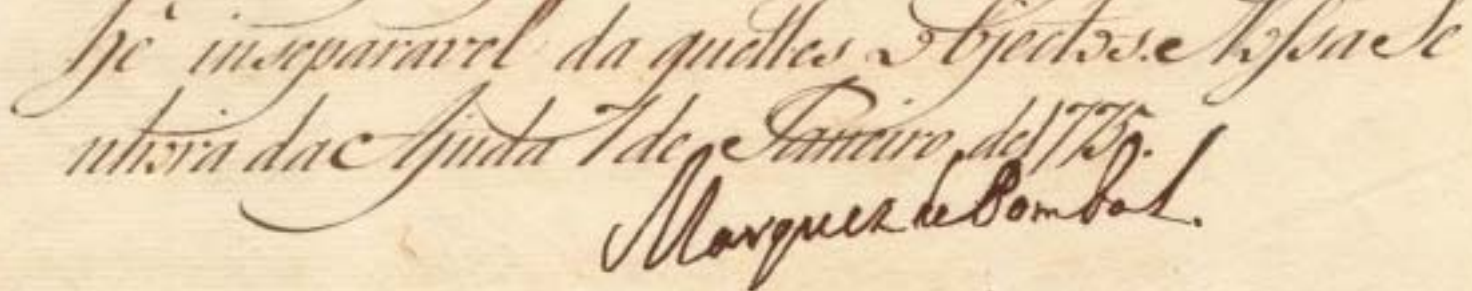 hé inseparavel da quelles Objectos. Nossa Se
nhora da Ajuda 7 de Janeiro de 1775.
Marquez de Pombal.